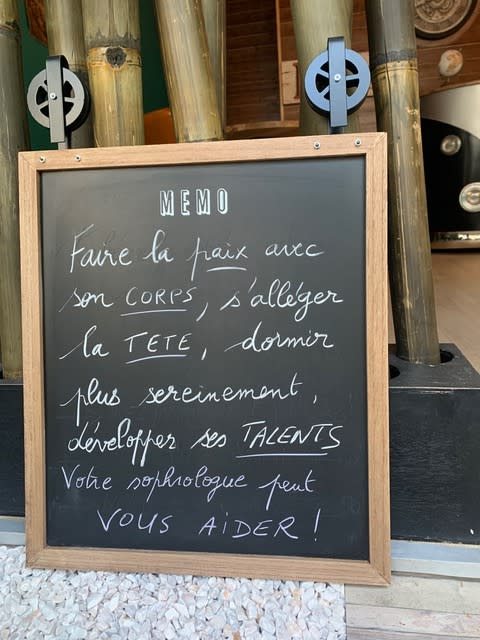 MEMO
Faire la paix avec
son CORPS, s'alléger
la TETE, dormir
plus sereinement,
développer ses TALENTS
Votre sophrologue peut
VOUS AiDER !